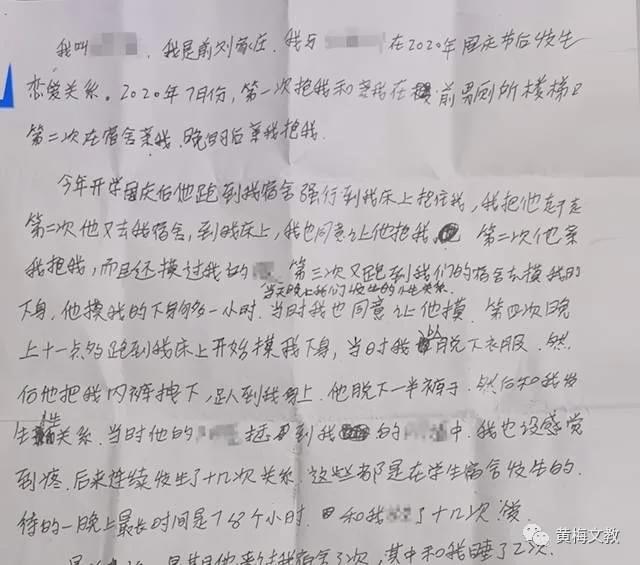 我叫 我是前刘家庄.我与 在2020年国庆节后发生
恋爱关系。2020年7月份,第一次抱我和亲我在 前男厕所楼梯口
第二次在宿舍亲我.晚自后亲我抱我.
今年开学国庆后他跑到我宿舍强行到我床上抱住我,我把他
第二次他又去我宿舍,到我床上,我也同意让他抱我 第二次他亲
我抱我,而且还摸过我的 第三次又跑到我们的宿舍去摸我的
当天晚上我们 发生的 关系.
下身,他摸我的下身 一小时.当时我也同意让他摸.第四次晚
上十一点多跑到我床上开始摸我下身,当时我 脱下衣服.然
后他把我内裤拽下,趴到我身上.他脱下一半裤子.然后和我发
生 关系.当时他的 到我 的 中.我也没感觉
到疼.后来连续发生了十几次关系.这些都是在学生宿舍发生的.
待的一晚上最长时间是7 8个小时. 和我 了十几次
是其他 来过我宿舍3次,其中和我睡了2次.
黄梅文教